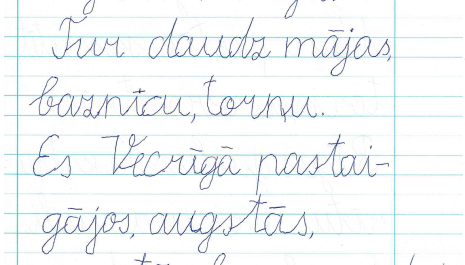 Tur daudz mājas,
baznīcu, torņu.
Es Vecrīgā pastai-
gājos, augstās,